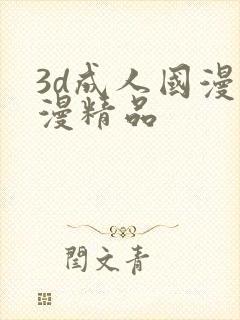 3d成人國漫
漫精品
閆文青